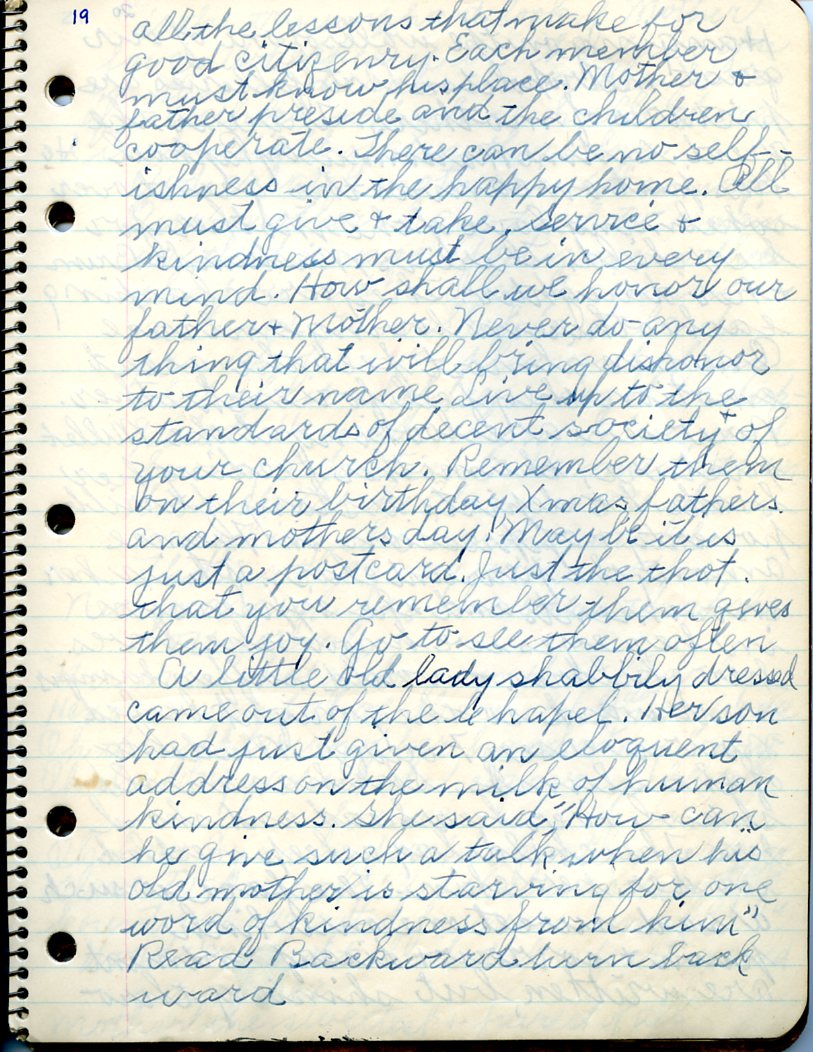 19
all the lessons that make for
good citizenry. Each member
must know his place. Mother &
father preside and the children
cooperate. There can be no self-
ishness in the happy home. All
must give & take. Service &
kindness must be in every
mind. How shall we honor our
father & Mother. Never do any
thing that will bring dishonor
to their name Live up to the
standards of decent society + of
your church. Remember them
on their birthday Xmas, fathers
and mothers day. May be it is
just a postcard. Just the thot.
that you remember them gives
them joy. Go to see them often
A little old lady shabbily dressed
came out of the chapel. Her son
had just given an eloquent
address on the milk of human
kindness. She said, "How can
he give such a talk when his
old mother is starving for one
word of kindness from him"
Read Backward turn back
ward